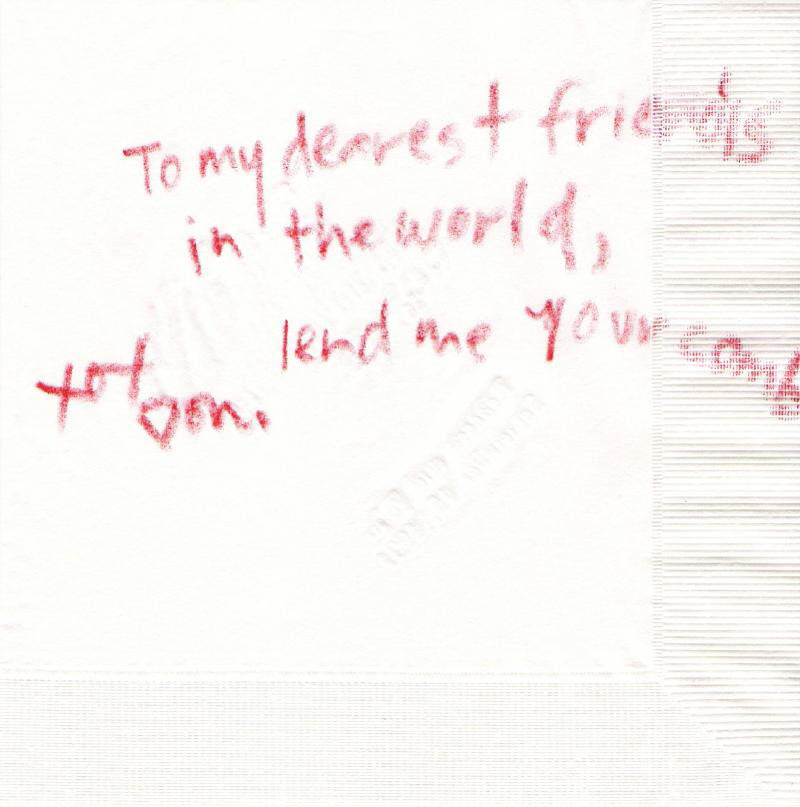 To my dearest friends
in the world,
lend me your comb